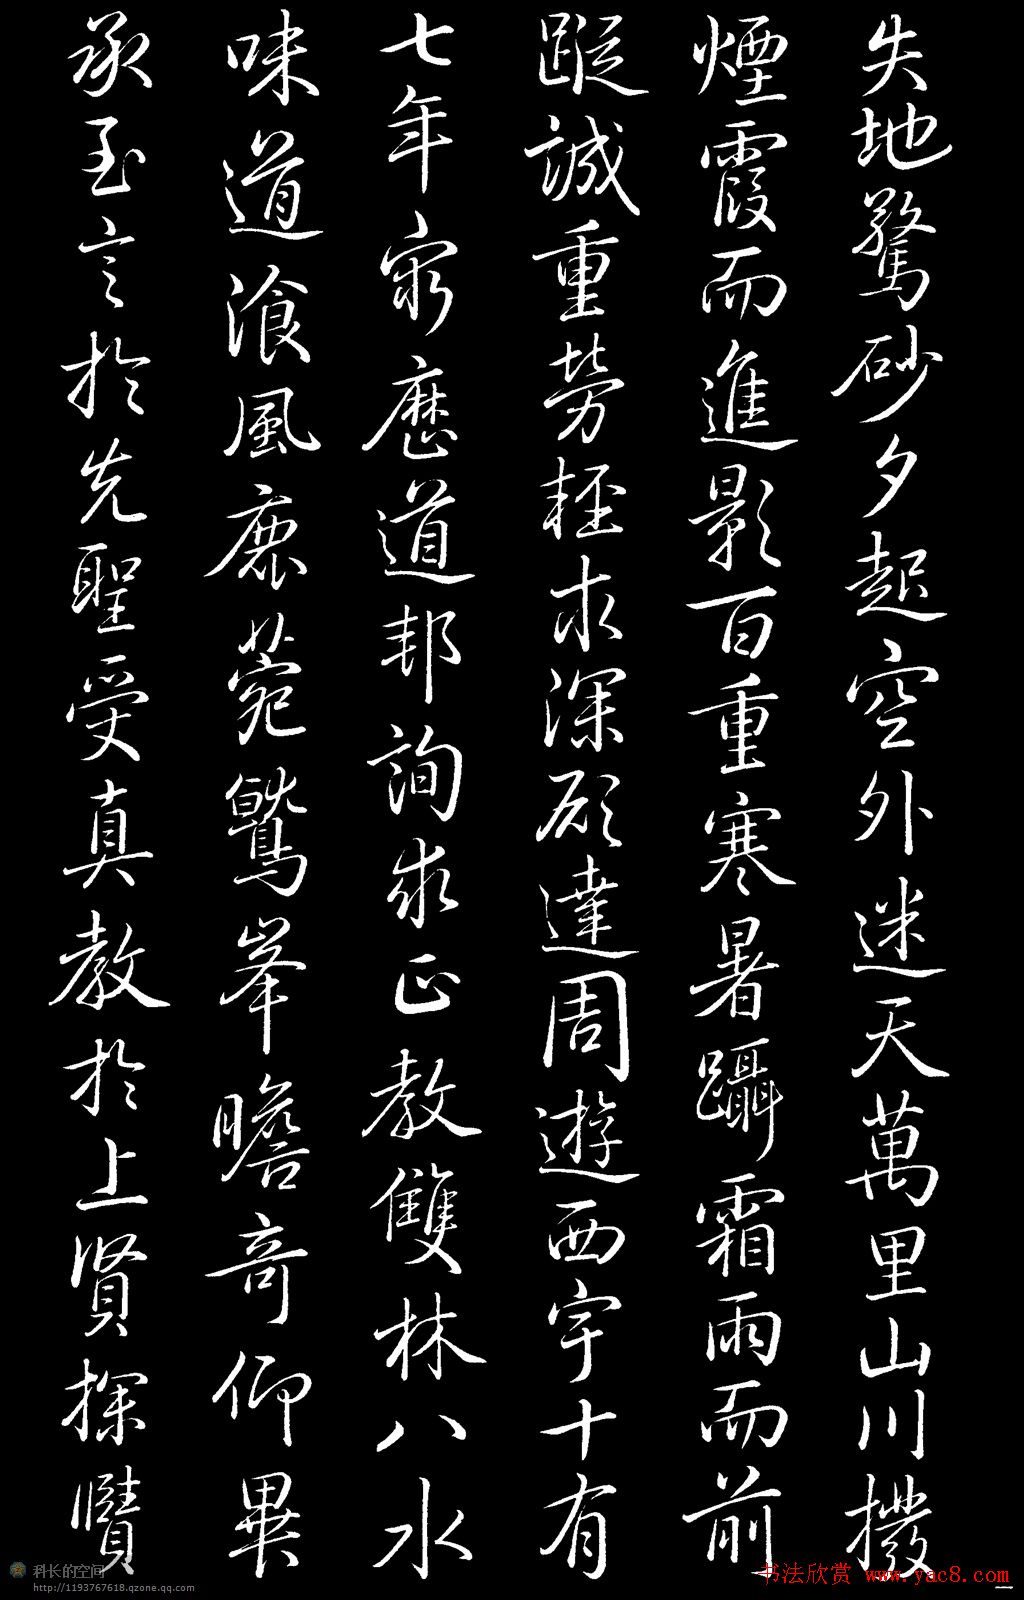 失地驚砂夕起空外迷天萬里山川撥
煙霞而進影百重寒暑躡霜雨而前
蹤誠重勞輕求深願達周遊西宇十有
七年窮歷道邦詢求正教雙林八水
味道飡風鹿菀鷲峯瞻奇仰異
承至言於先聖受真教於上賢探賾
科长的空间
http://1193767618.qzone.qq.com
书法欣赏 www.yac8.com